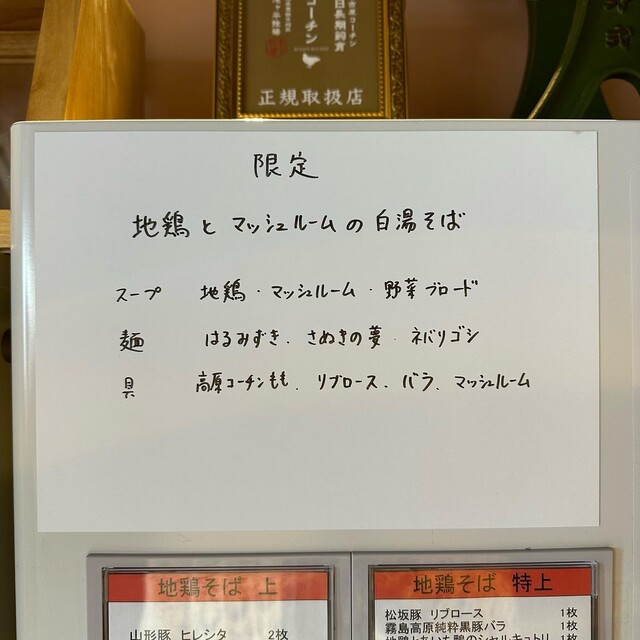 コーチン
正規取扱店
限定
地鶏とマッシュルームの白湯そば
スープ 地鶏・マッシュルーム・野菜ブロード
麺 はるみずき、さぬきの夢、ネバリゴシ
具 高原コーチンもも、リブロース、バラ、マッシュルーム
地鶏そば 上
山形豚 ヒレシタ 2枚
地鶏そば 特上
松坂豚 リブロース 1枚
霧島高原純粋黒豚バラ 1枚